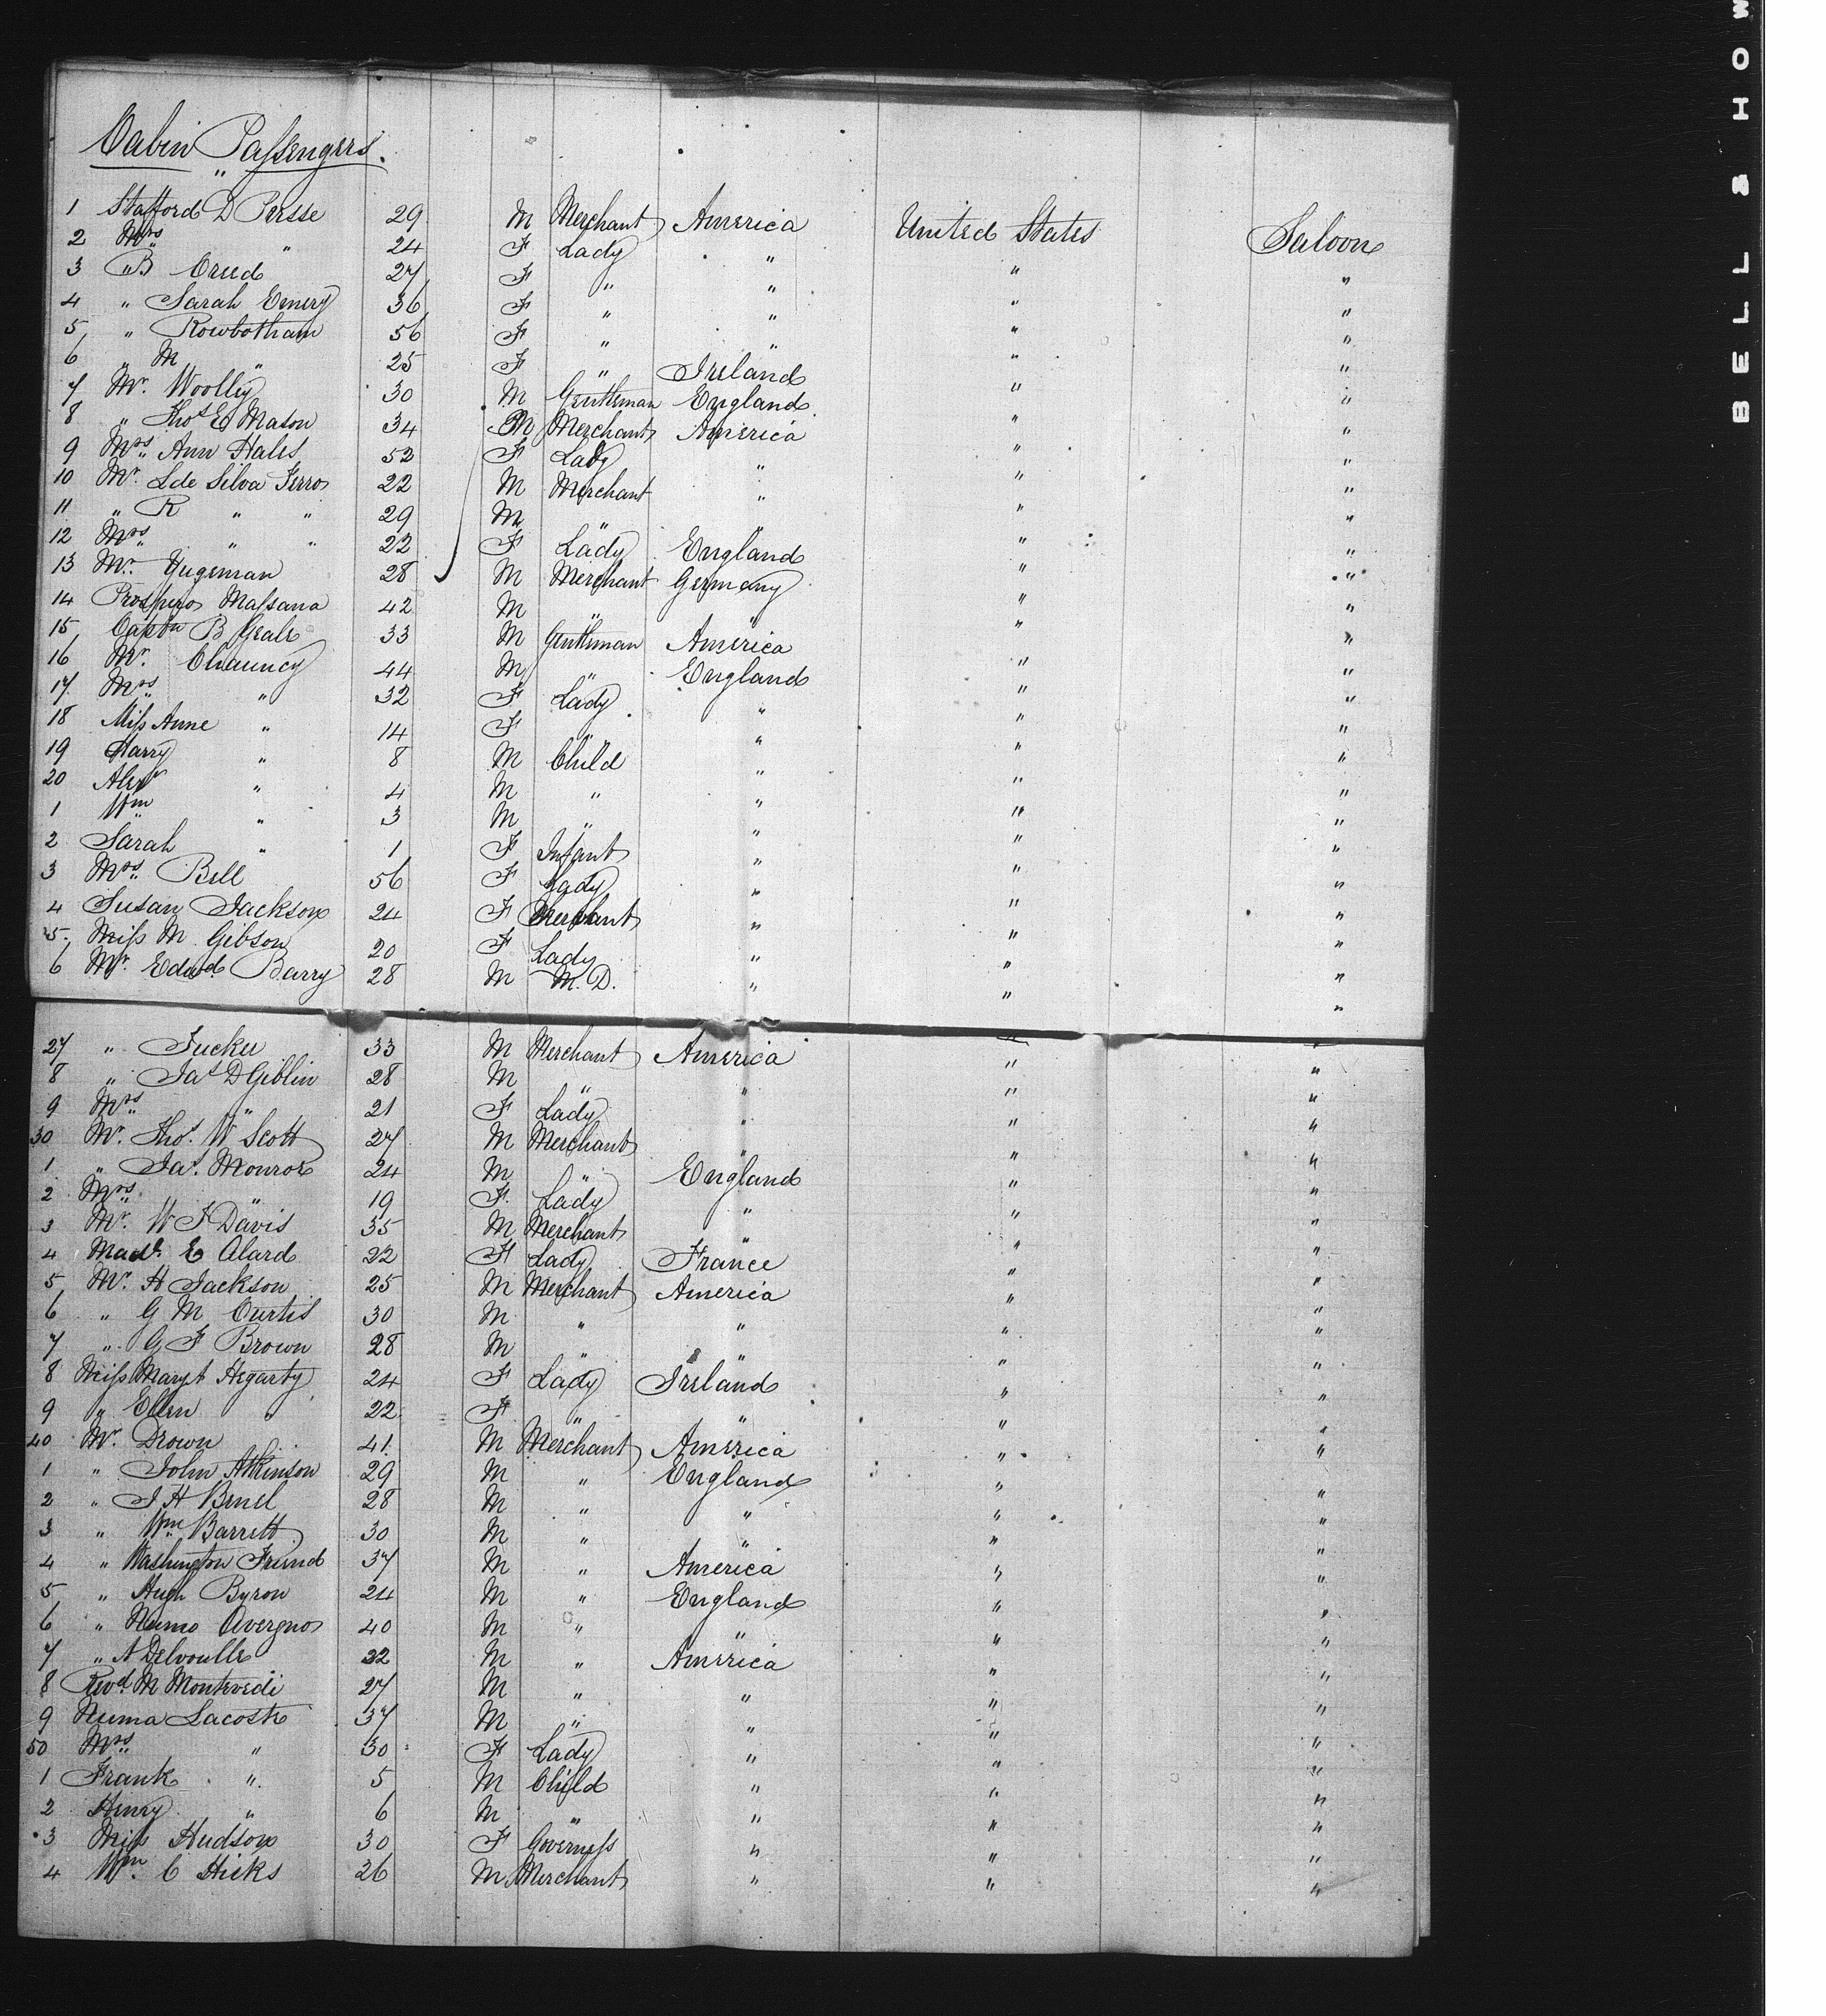 Cabin Passengers.
1 Stafford D Persse 29 M Merchant America United States Saloon
2 Mrs " 24 F Lady " " "
3 " B Creed 27 F " " " "
4 " Sarah Emery 36 F " " " "
5 " Rowbotham 56 F " " " "
6 " M " 25 F " Ireland " "
7 Mr. Woolley 30 M Gentleman England " "
8 " Thos E Mason 34 M Merchant America " "
9 Mrs Ann Hales 52 F Lady " " "
10 Mr. L de Silva Ferro 22 M Merchant " " "
11 " R " " 29 M " " " "
12 Mrs " " 22 F Lady England " "
13 Mr. Hugeman 28 M Merchant Germany " "
14 Prospero Massana 42 M " " " "
15 Captn B Geale 33 M Gentleman America " "
16 Mr. Chauncy 44 M " England " "
17 Mrs " 32 F Lady " " "
18 Miss Anne " 14 F " " " "
19 Harry " 8 M Child " " "
20 Alexr " 4 M " " " "
1 Wm " 3 M " " " "
2 Sarah " 1 F Infant " " "
3 Mrs. Bell 56 F Lady " " "
4 Susan Jackson 24 F " " "
5 Miss M Gibson 20 F Lady " " "
6 Mr Edwd Barry 28 M M.D. " " "
27 " Tucker 33 M Merchant America " "
8 " Jas D Giblin 28 M " " " "
9 Mrs " 21 F Lady " " "
30 Mr. Thos. W Scott 27 M Merchant " " "
1 " Jas. Monroe 24 M " England " "
2 Mrs " 19 F Lady " " "
3 Mr. W J Davis 35 M Merchant " " "
4 Madl. E Alard 22 F Lady France " "
5 Mr. H Jackson 25 M Merchant America " "
6 " G M Curtis 30 M " " " "
7 " G F Brown 28 M " " " "
8 Miss Margt Hegarty 24 F Lady Ireland " "
9 " Ellen " 22 F " " " "
40 Mr. Drown 41 M Merchant America " "
1 " John Atkinson 29 M " England " "
2 " J H 28 M " " " "
3 " Wm Barrett 30 M " " " "
4 " Washington Friend 37 M " America " "
5 " Hugh Byron 24 M " England " "
6 " Numo Avergno 40 M " " " "
7 " A Delvoulle 32 M " America " "
8 Revd. M Montevedi 27 M " " " "
9 Numa Lacoste 37 M " " " "
50 Mrs " 30 F Lady " " "
1 Frank " 5 M Child " " "
2 Henry " 6 M " " " "
3 Miss Hudson 30 F Governess " " "
4 Wm. C Hicks 26 M Merchant " " "
BELL & HOW